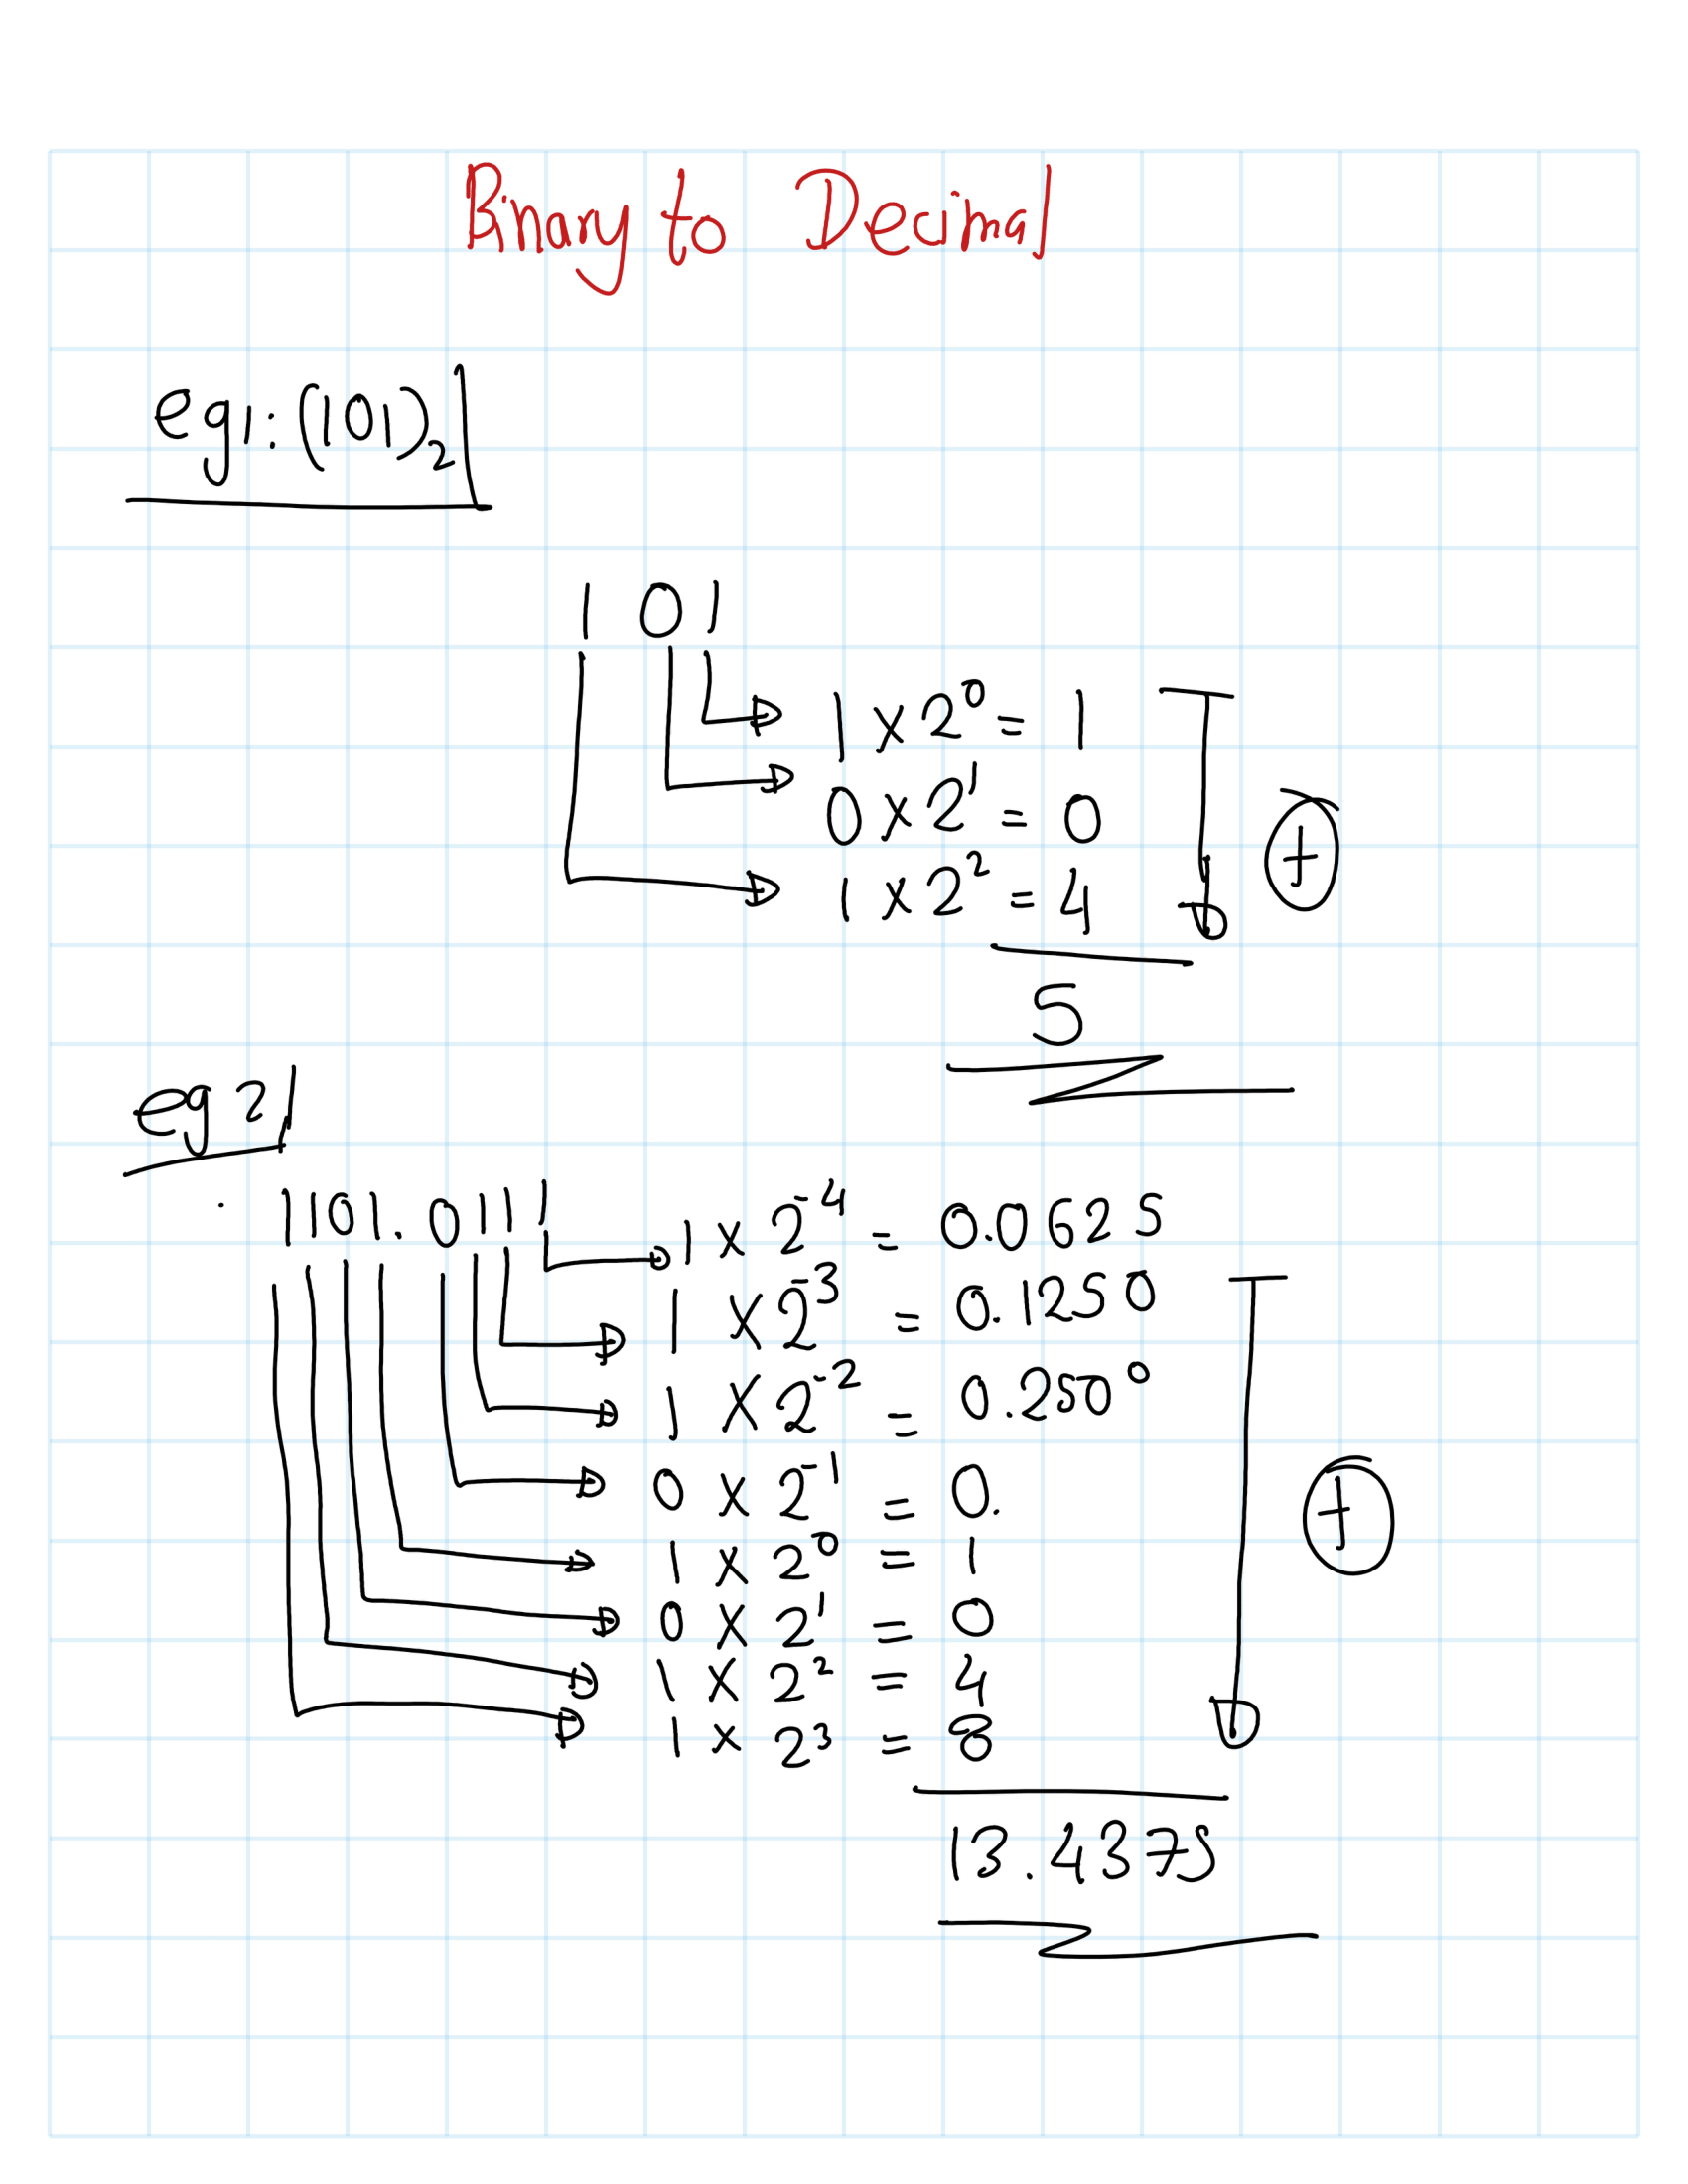 Binary to Decimal
eg1: (101)₂
101
1 × 2⁰ = 1
0 × 2¹ = 0
1 × 2² = 4
+
5
eg 2
1101.0111
1 × 2⁻⁴ = 0.0625
1 × 2⁻³ = 0.1250
1 × 2⁻² = 0.2500
0 × 2⁻¹ = 0.
1 × 2⁰ = 1
0 × 2¹ = 0
1 × 2² = 4
1 × 2³ = 8
+
13.4375